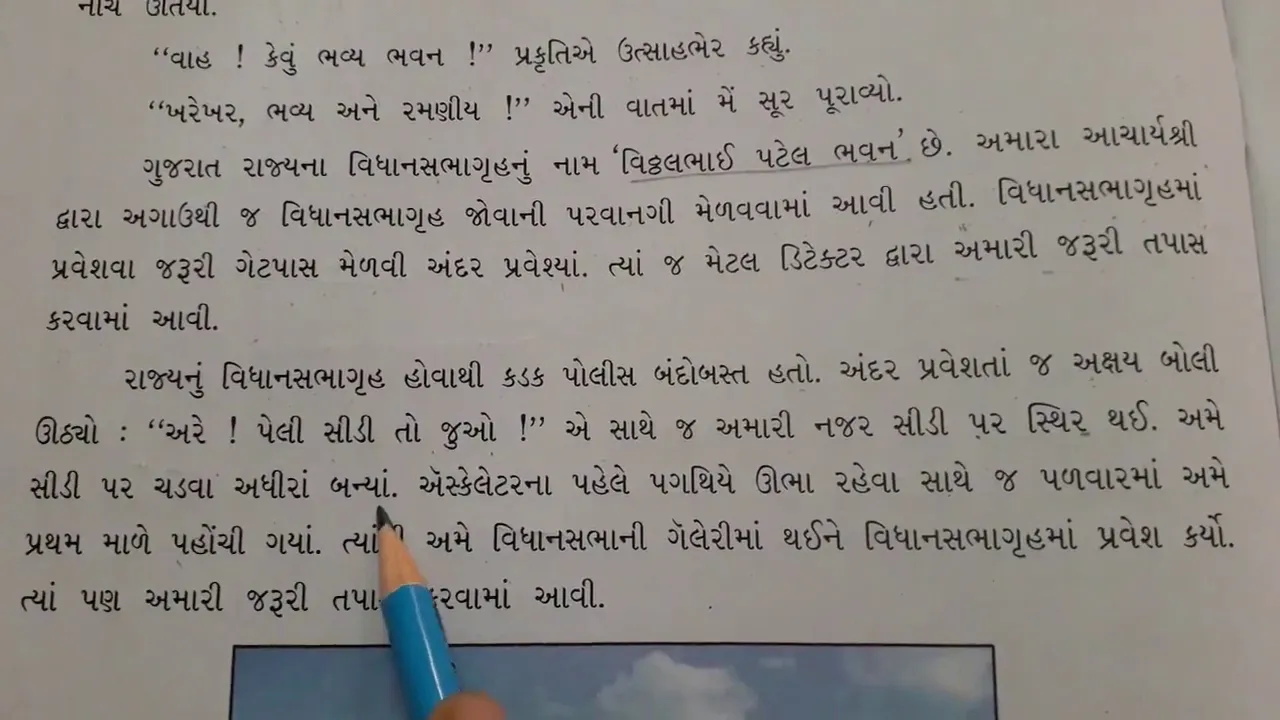 નીચે ઊતર્યા.
“વાહ ! કેવું ભવ્ય ભવન !” પ્રકૃતિએ ઉત્સાહભેર કહ્યું.
“ખરેખર, ભવ્ય અને રમણીય !” એની વાતમાં મેં સૂર પૂરાવ્યો.
ગુજરાત રાજ્યના વિધાનસભાગૃહનું નામ ‘વિઠ્ઠલભાઈ પટેલ ભવન’ છે. અમારા આચાર્યશ્રી
દ્વારા અગાઉથી જ વિધાનસભાગૃહ જોવાની પરવાનગી મેળવવામાં આવી હતી. વિધાનસભાગૃહમાં
પ્રવેશવા જરૂરી ગેટપાસ મેળવી અંદર પ્રવેશ્યાં. ત્યાં જ મેટલ ડિટેક્ટર દ્વારા અમારી જરૂરી તપાસ
કરવામાં આવી.
રાજ્યનું વિધાનસભાગૃહ હોવાથી કડક પોલીસ બંદોબસ્ત હતો. અંદર પ્રવેશતાં જ અક્ષય બોલી
ઊઠ્યો : “અરે ! પેલી સીડી તો જુઓ !” એ સાથે જ અમારી નજર સીડી પર સ્થિર થઈ. અમે
સીડી પર ચડવા અધીરાં બન્યાં. ઍસ્કેલેટરના પહેલે પગથિયે ઊભા રહેવા સાથે જ પળવારમાં અમે
પ્રથમ માળે પહોંચી ગયાં. ત્યાંથી અમે વિધાનસભાની ગૅલેરીમાં થઈને વિધાનસભાગૃહમાં પ્રવેશ કર્યો.
ત્યાં પણ અમારી જરૂરી તપાસ કરવામાં આવી.